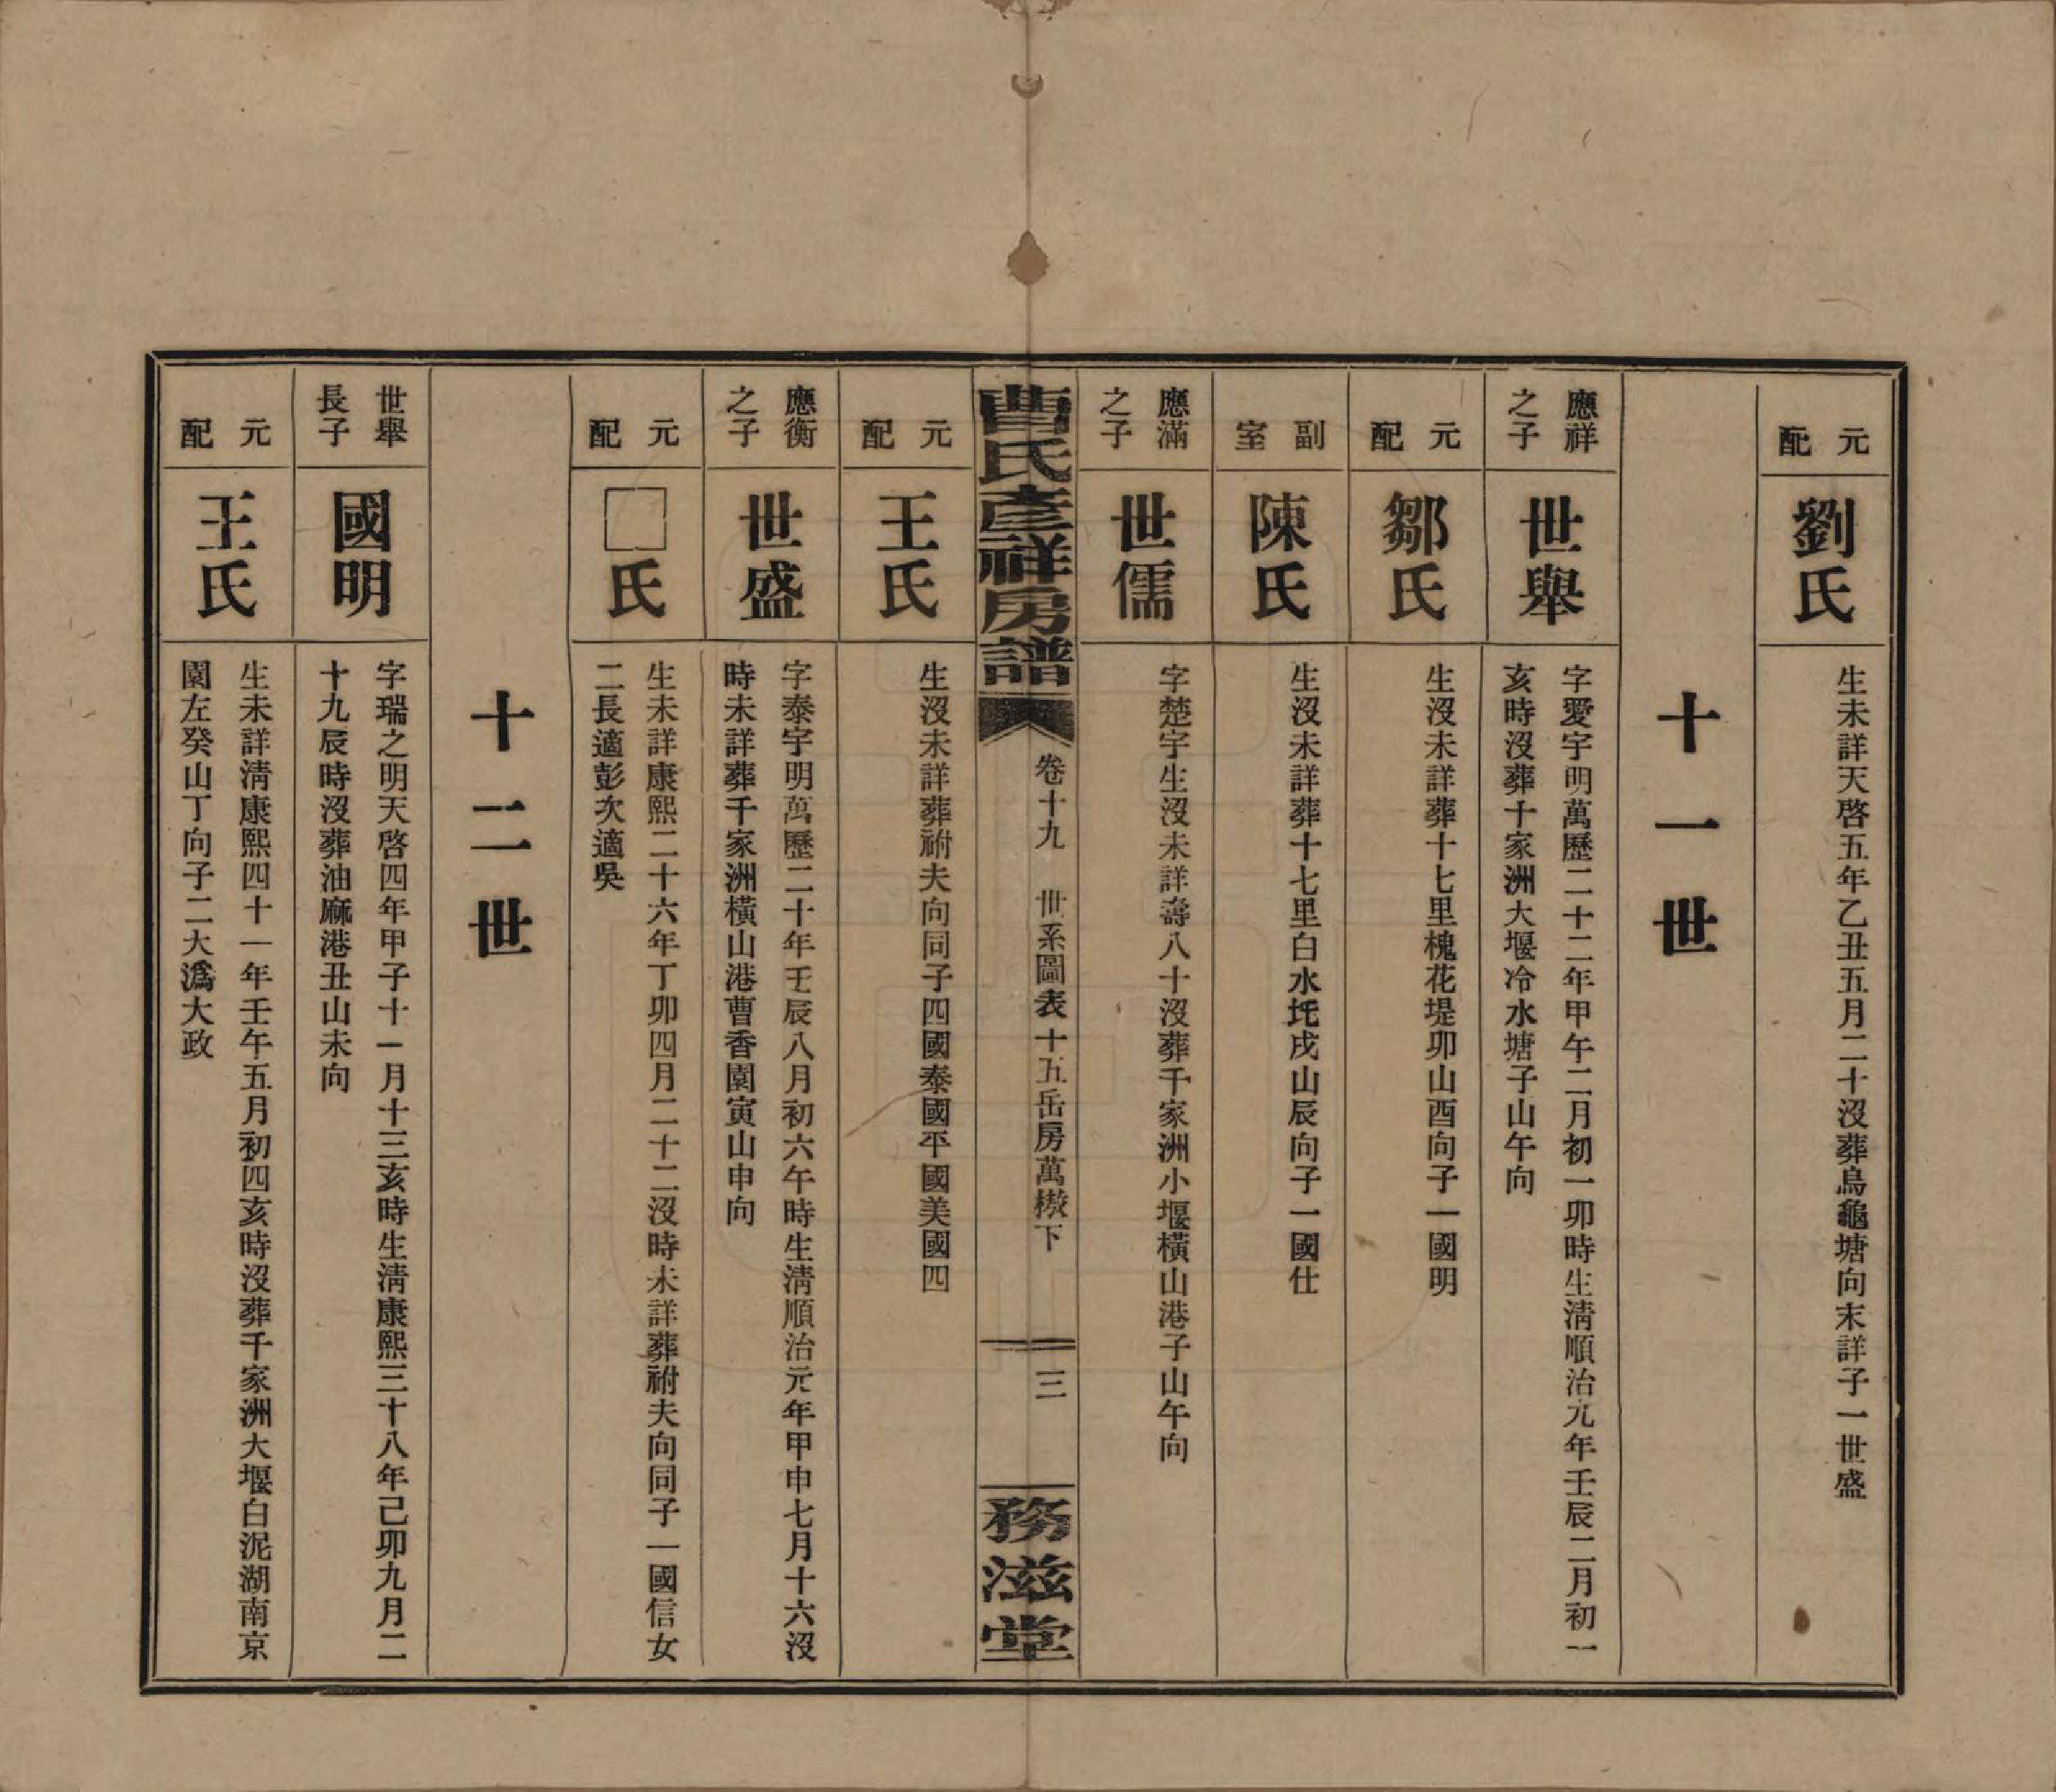 元配
劉氏
生未詳天啓五年乙丑五月二十沒葬烏龜塘向末詳子一世盛
十一世
應祥
之子
世舉
字愛宇明萬歷二十二年甲午二月初一卯時生淸順治九年壬辰二月初一
亥時沒葬十家洲大堰冷水塘子山午向
元配
鄒氏
生沒未詳葬十七里槐花堤卯山酉向子一國明
副室
陳氏
生沒未詳葬十七里白水圫戌山辰向子一國仕
應滿
之子
世儒
字楚宇生沒未詳壽八十沒葬千家洲小堰橫山港子山午向
曹氏彥祥房譜
卷十九 世系圖表十五岳房萬樷下
三
務滋堂
元配
王氏
生沒未詳葬祔夫向同子四國泰國平國美國四
應衡
之子
世盛
字泰宇明萬歷二十年壬辰八月初六午時生淸順治元年甲申七月十六沒
時未詳葬千家洲橫山港曹香園寅山申向
元配
□氏
生未詳康熙二十六年丁卯四月二十二沒時未詳葬祔夫向同子一國信女
二長適彭次適吳
十二世
世舉
長子
國明
字瑞之明天啓四年甲子十一月十三亥時生淸康熙三十八年己卯九月二
十九辰時沒葬油麻港丑山未向
元配
王氏
生未詳淸康熙四十一年壬午五月初四亥時沒葬千家洲大堰白泥湖南京
園左癸山丁向子二大潙大政